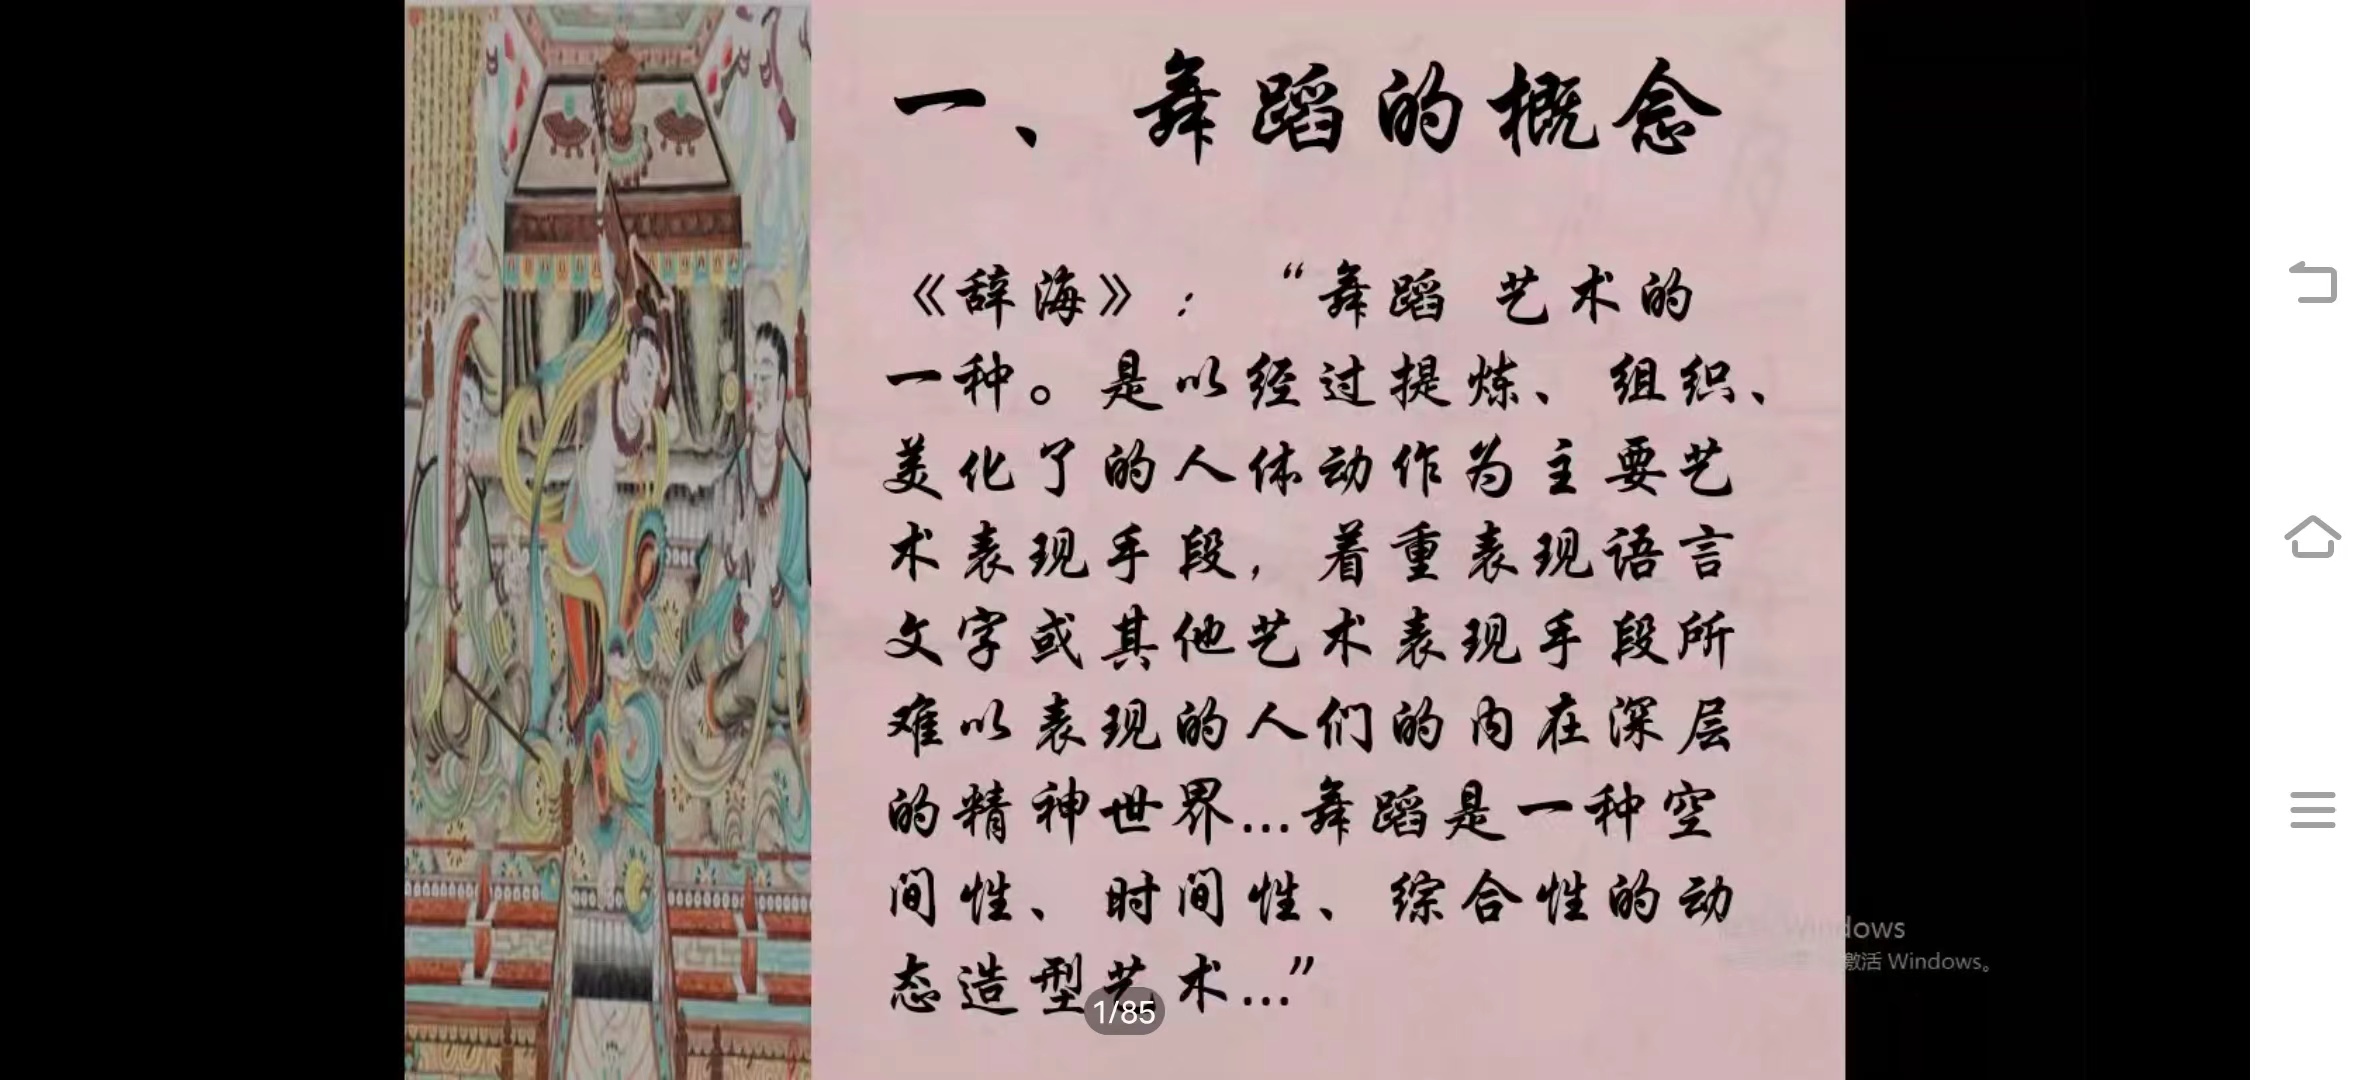 一、舞蹈的概念
《辞海》：“舞蹈 艺术的
一种。是以经过提炼、组织、
美化了的人体动作为主要艺
术表现手段，着重表现语言
文字或其他艺术表现手段所
难以表现的人们的内在深层
的精神世界…舞蹈是一种空
间性、时间性、综合性的动
态造型艺术…”
Windows
激活 Windows。
1/85